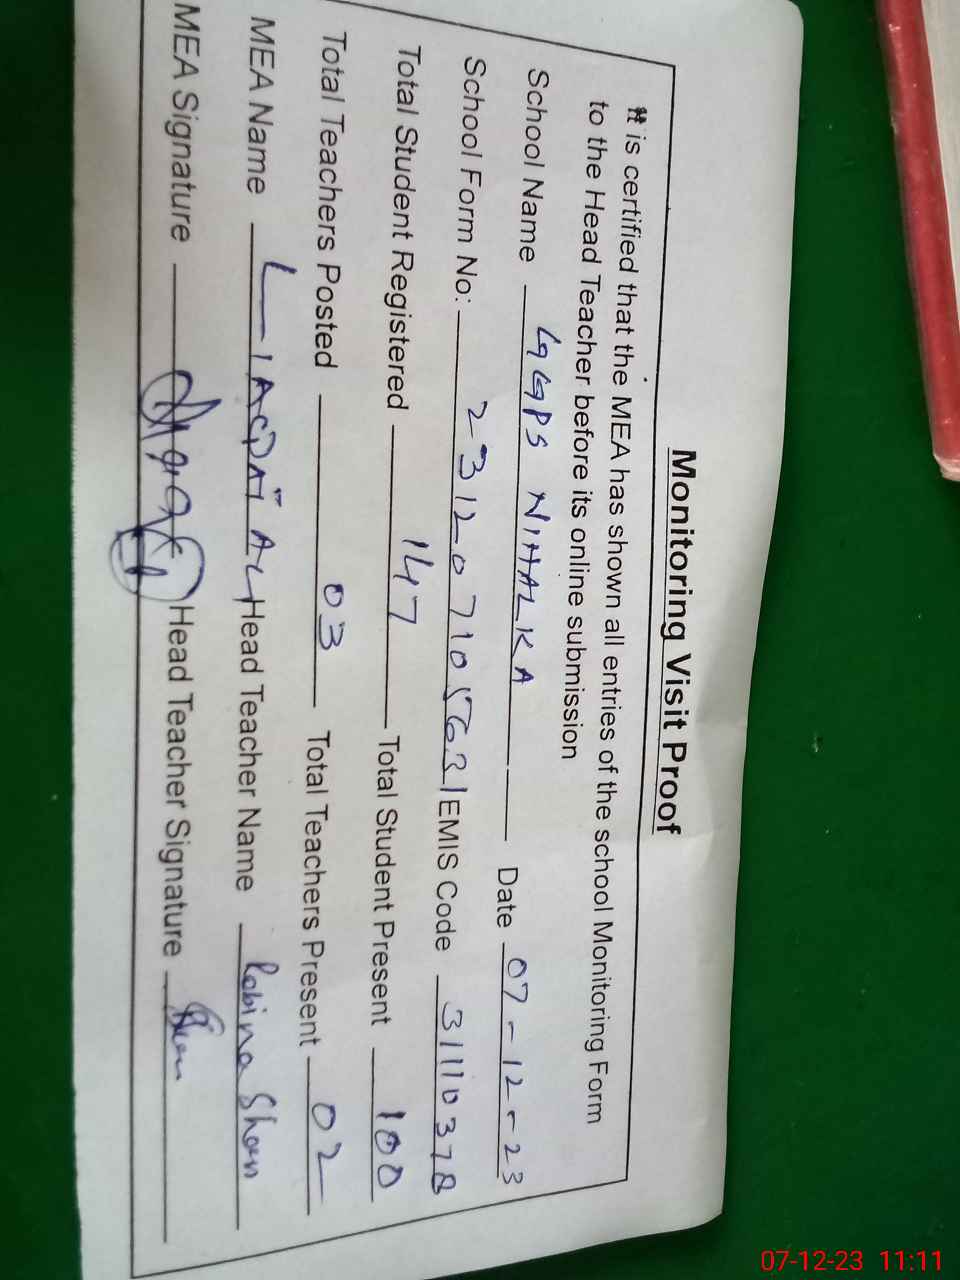 Monitoring Visit Proof
It is certified that the MEA has shown all entries of the school Monitoring Form
to the Head Teacher before its online submission
School Name GGPS NIHALKA Date 07-12-23
School Form No: 23120710563 EMIS Code 31110378
Total Student Registered 147 Total Student Present 100
Total Teachers Posted 03 Total Teachers Present 02
MEA Name LIAQAT ALI Head Teacher Name Robina Shan
MEA Signature Head Teacher Signature
07-12-23 11:11